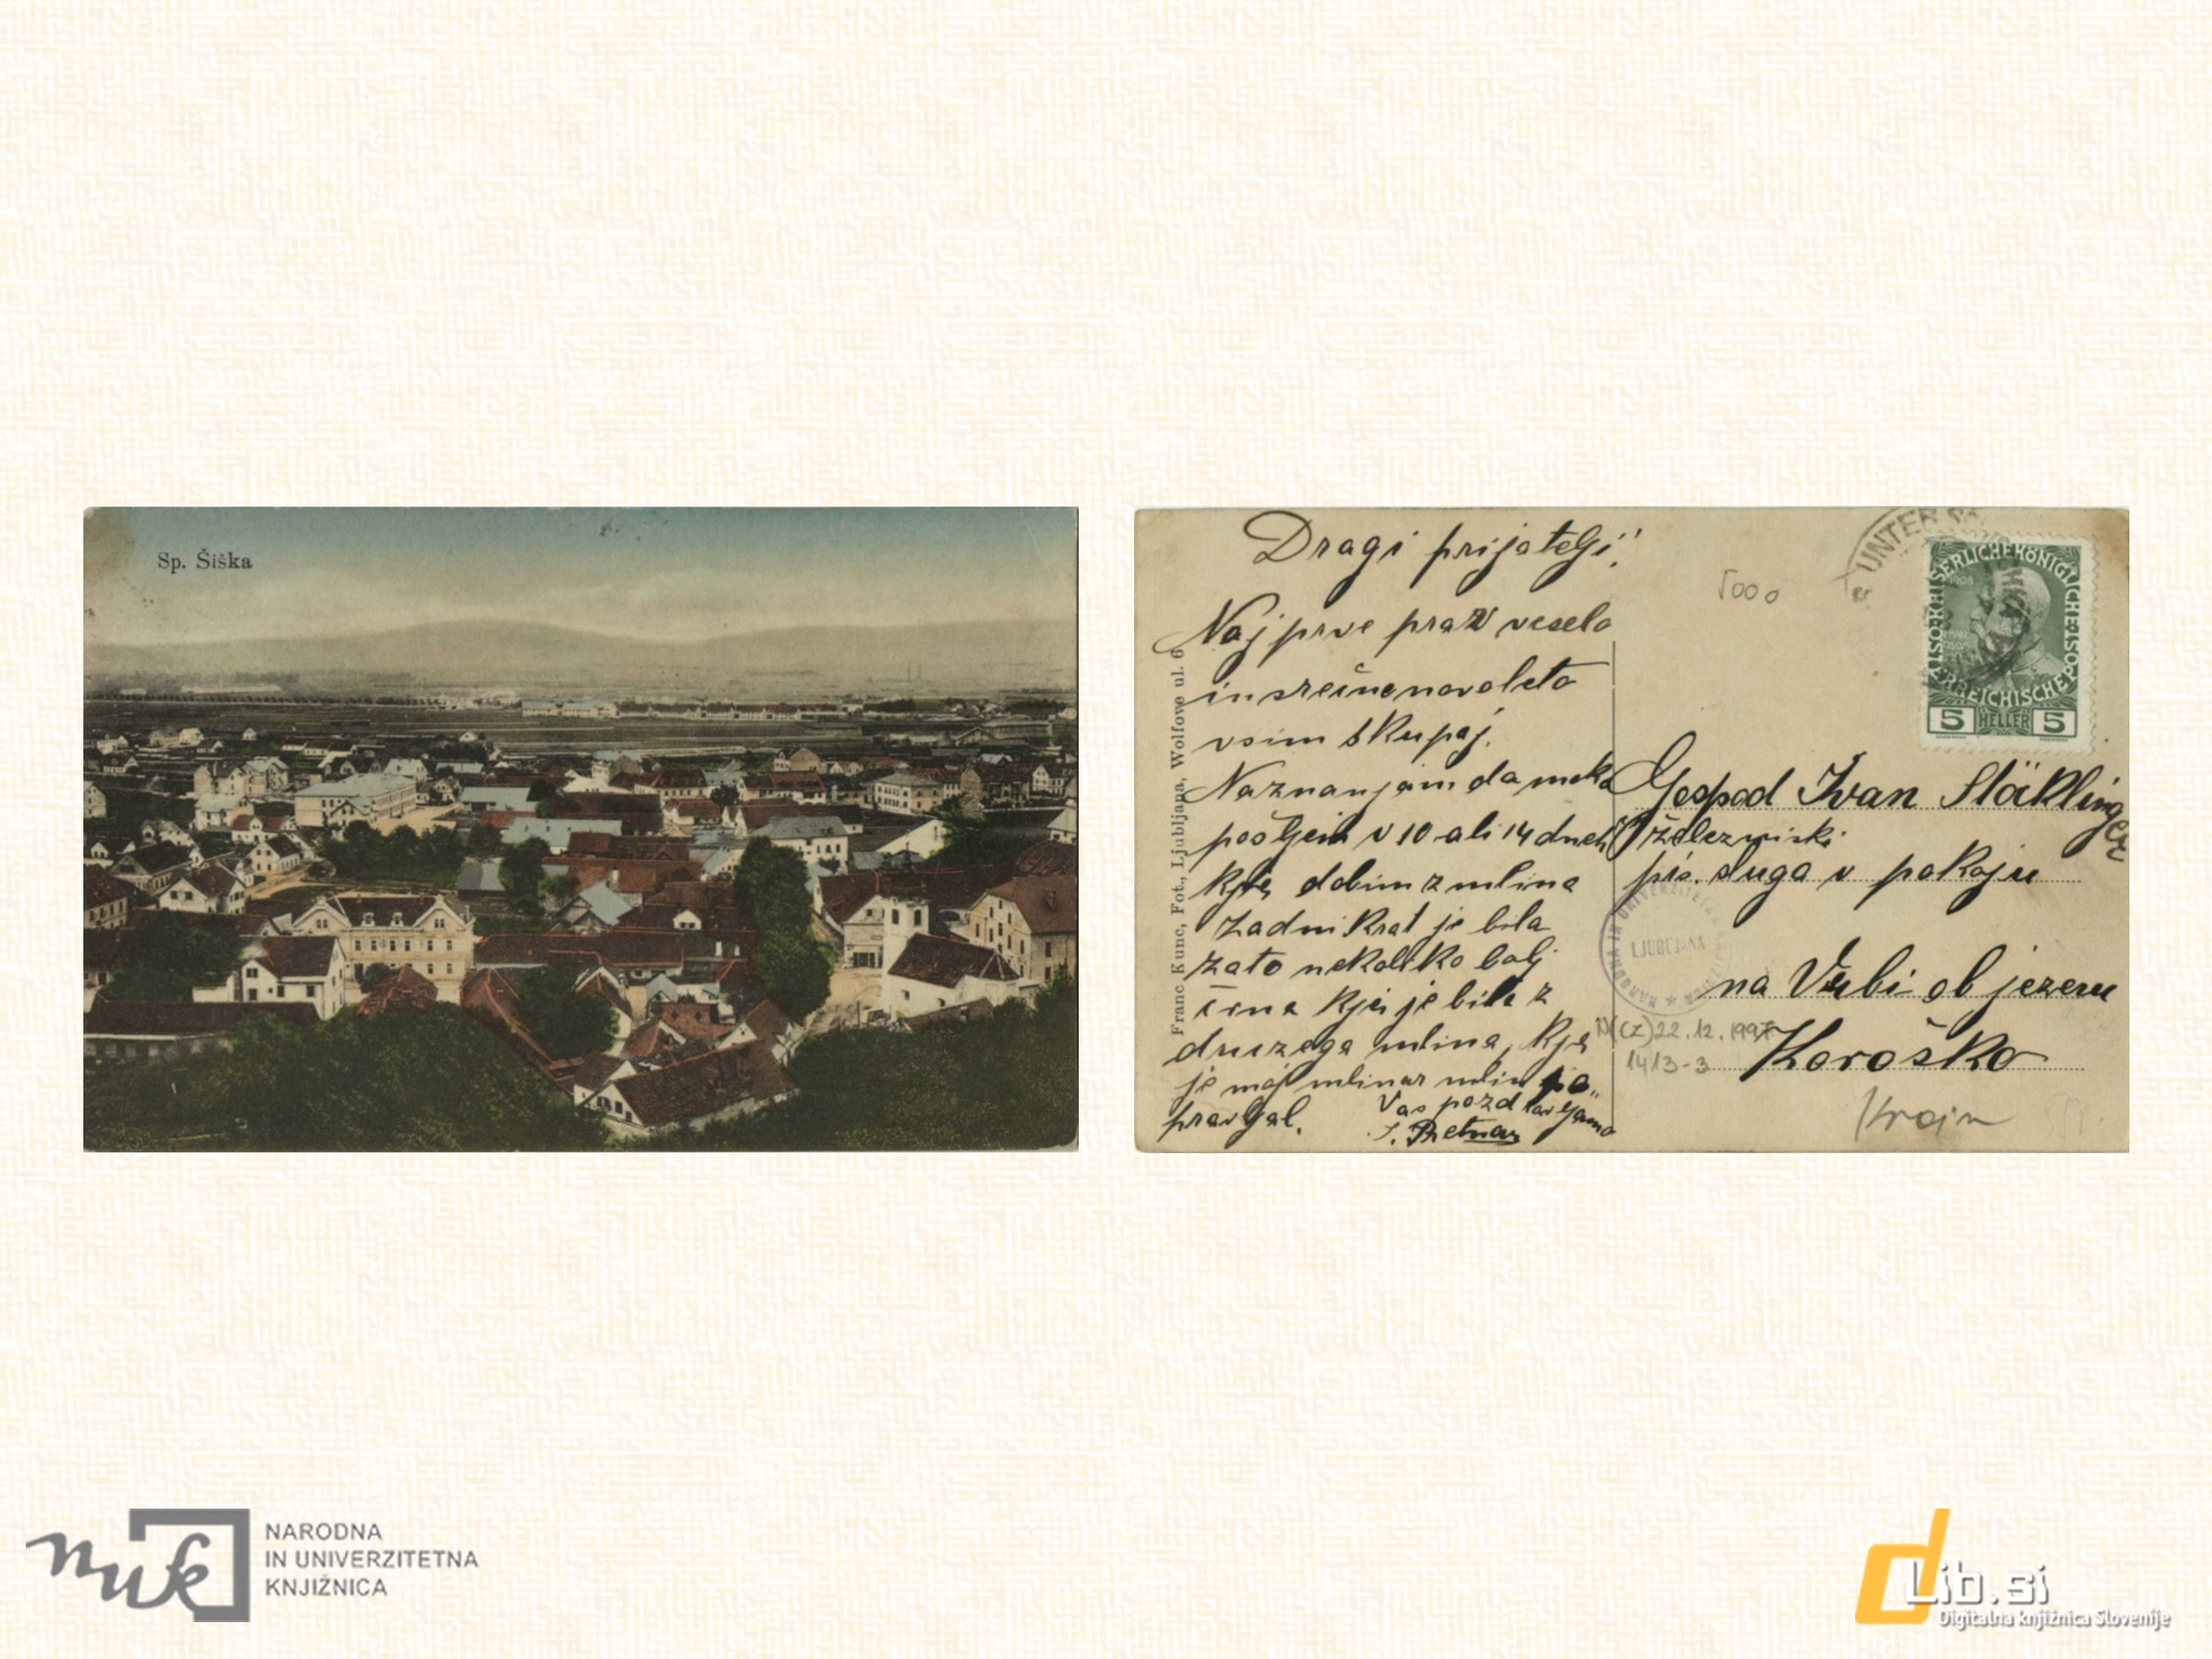 Sp. Šiška
Dragi prijatelji!
Naj prve prav vesela
in srečno novo leto
vsim skupaj.
Naznanjam da moko
pošljem v 10 ali 14 dneh
kje dobim z mlina
zadni krat je bila
zato nekoliko bolj
črna kjer je bila z
druzega mlina, kje
je moj mlinar mlin po„
pravljal.
Vas pozdravljamo
J. Pretnar
Franc Kunc, Fot., Ljubljana, Wolfova ul. 6
5000
UNTER
KAISERLICHE KÖNIGLICHE ÖSTERREICHISCHE POST
1908
5 HELLER 5
Gospod Ivan Stöcklinger
železniski
pis. sluga v pokoju
na Vrbi ob jezeru
Koroško
NARODNA IN UNIVERZITETNA KNJIŽNICA
LJUBLJANA
N(CZ)22.12.1997
1413-3
Krajn
nuk
NARODNA
IN UNIVERZITETNA
KNJIŽNICA
dLib.si
Digitalna knjižnica Slovenije